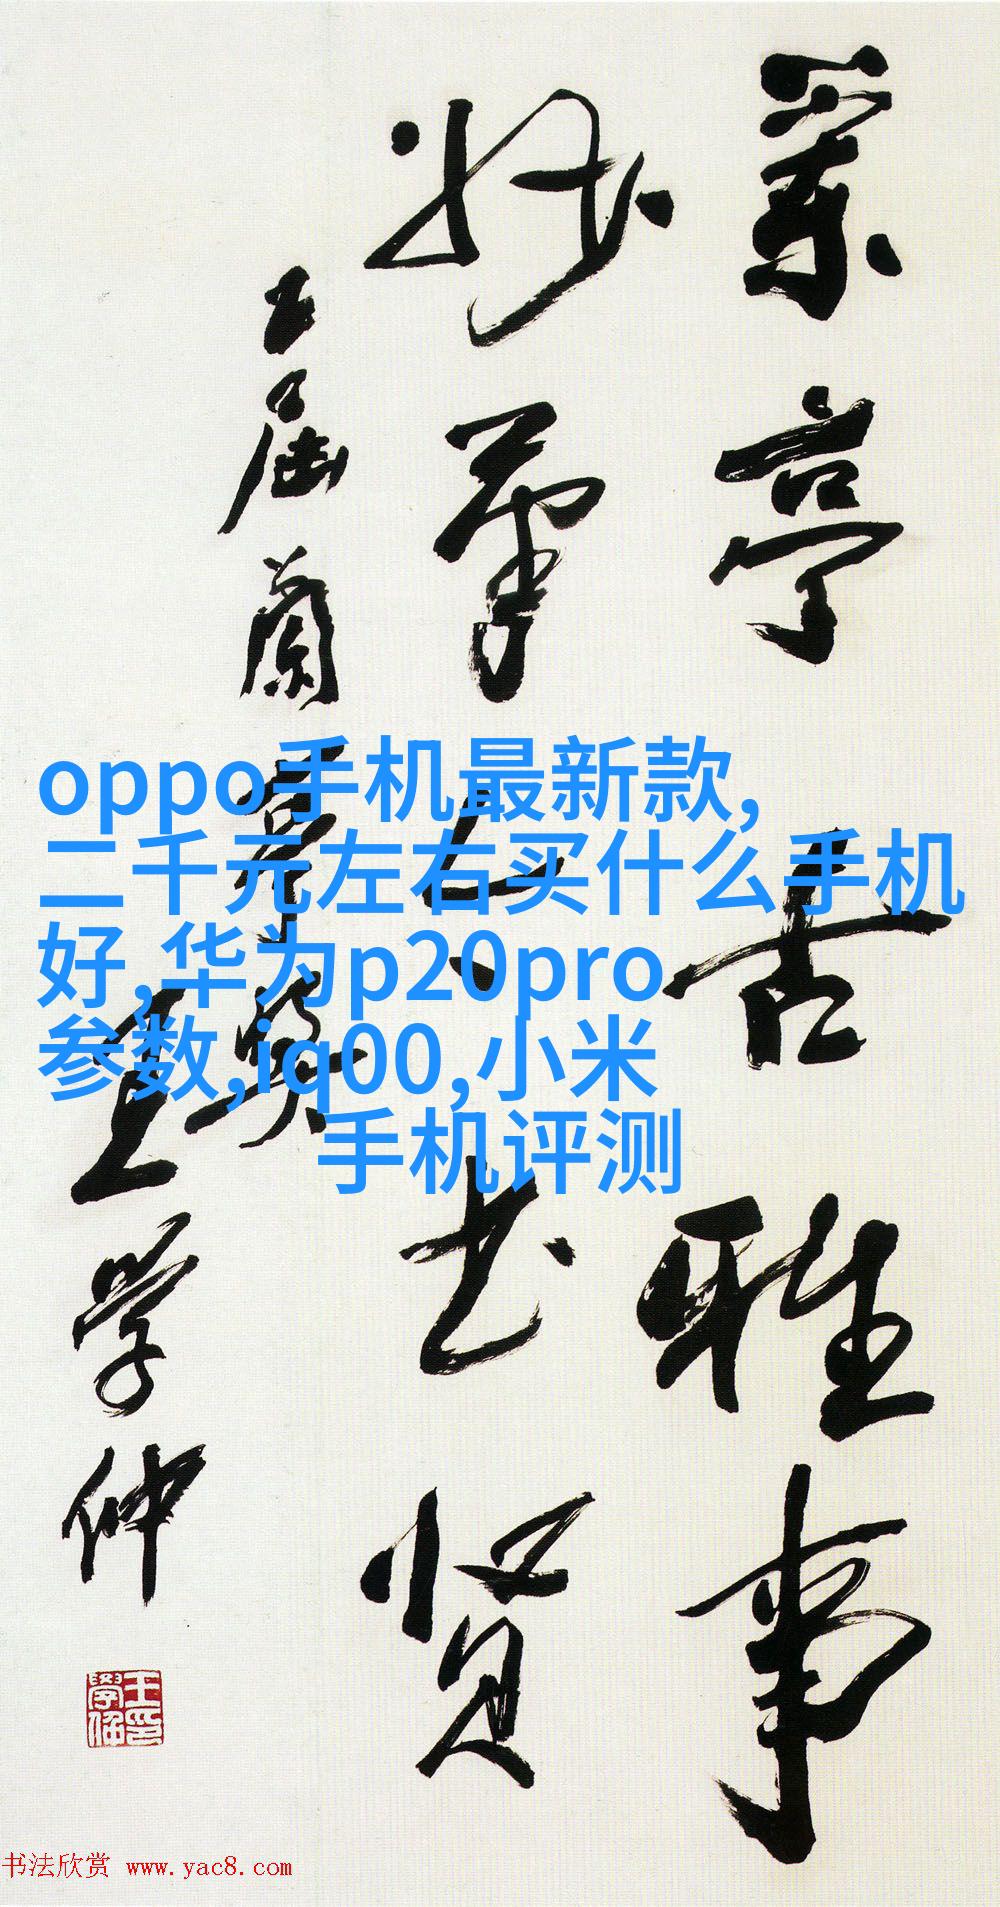 兰亭古雅事
妙笔书贤
五届兰亭奖
王学仲
oppo手机最新款,
二千元左右买什么手机
好,华为p20pro
参数,iq00,小米
手机评测
王學仲印
书法欣赏 www.yac8.com